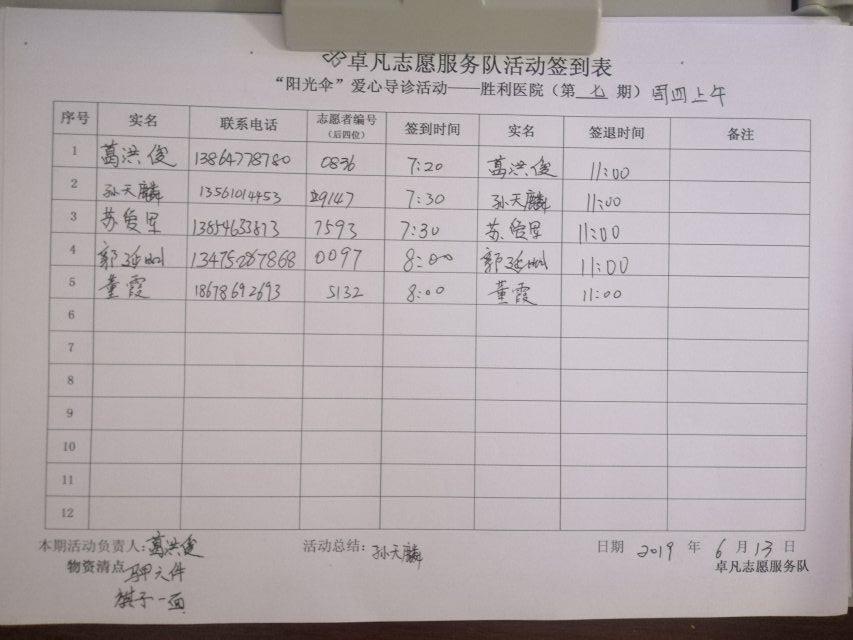 卓凡志愿服务队活动签到表
“阳光伞”爱心导诊活动——胜利医院（第 七 期）周四上午
序号 实名 联系电话 志愿者编号（后四位） 签到时间 实名 签退时间 备注
1 葛洪俊 13864778780 0836 7:20 葛洪俊 11:00
2 孙天麟 13561014453 9147 7:30 孙天麟 11:00
3 苏俊星 13854633813 7593 7:30 苏俊星 11:00
4 郭延 13475287868 0097 8:00 郭延 11:00
5 董霞 18678692693 5132 8:00 董霞 11:00
6
7
8
9
10
11
12
本期活动负责人:葛洪俊 活动总结:孙天麟 日期 2019 年 6 月 13 日
物资清点 马甲六件 卓凡志愿服务队
旗子一面